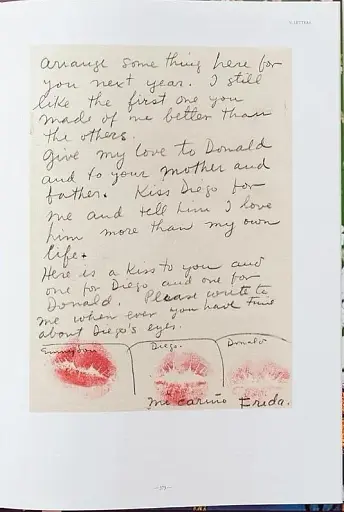 V. LETTERS
arrange something here for
you next year. I still
like the first one you
made of me better than
the others.
Give my love to Donald
and to your mother and
father. Kiss Diego for
me and tell him I love
him more than my own
life.
Here is a kiss to you and
one for Diego and one for
Donald. Please write to
me when ever you have time
about Diego's eyes.
Emmy Lou Diego. Donald
mi cariño Frida.